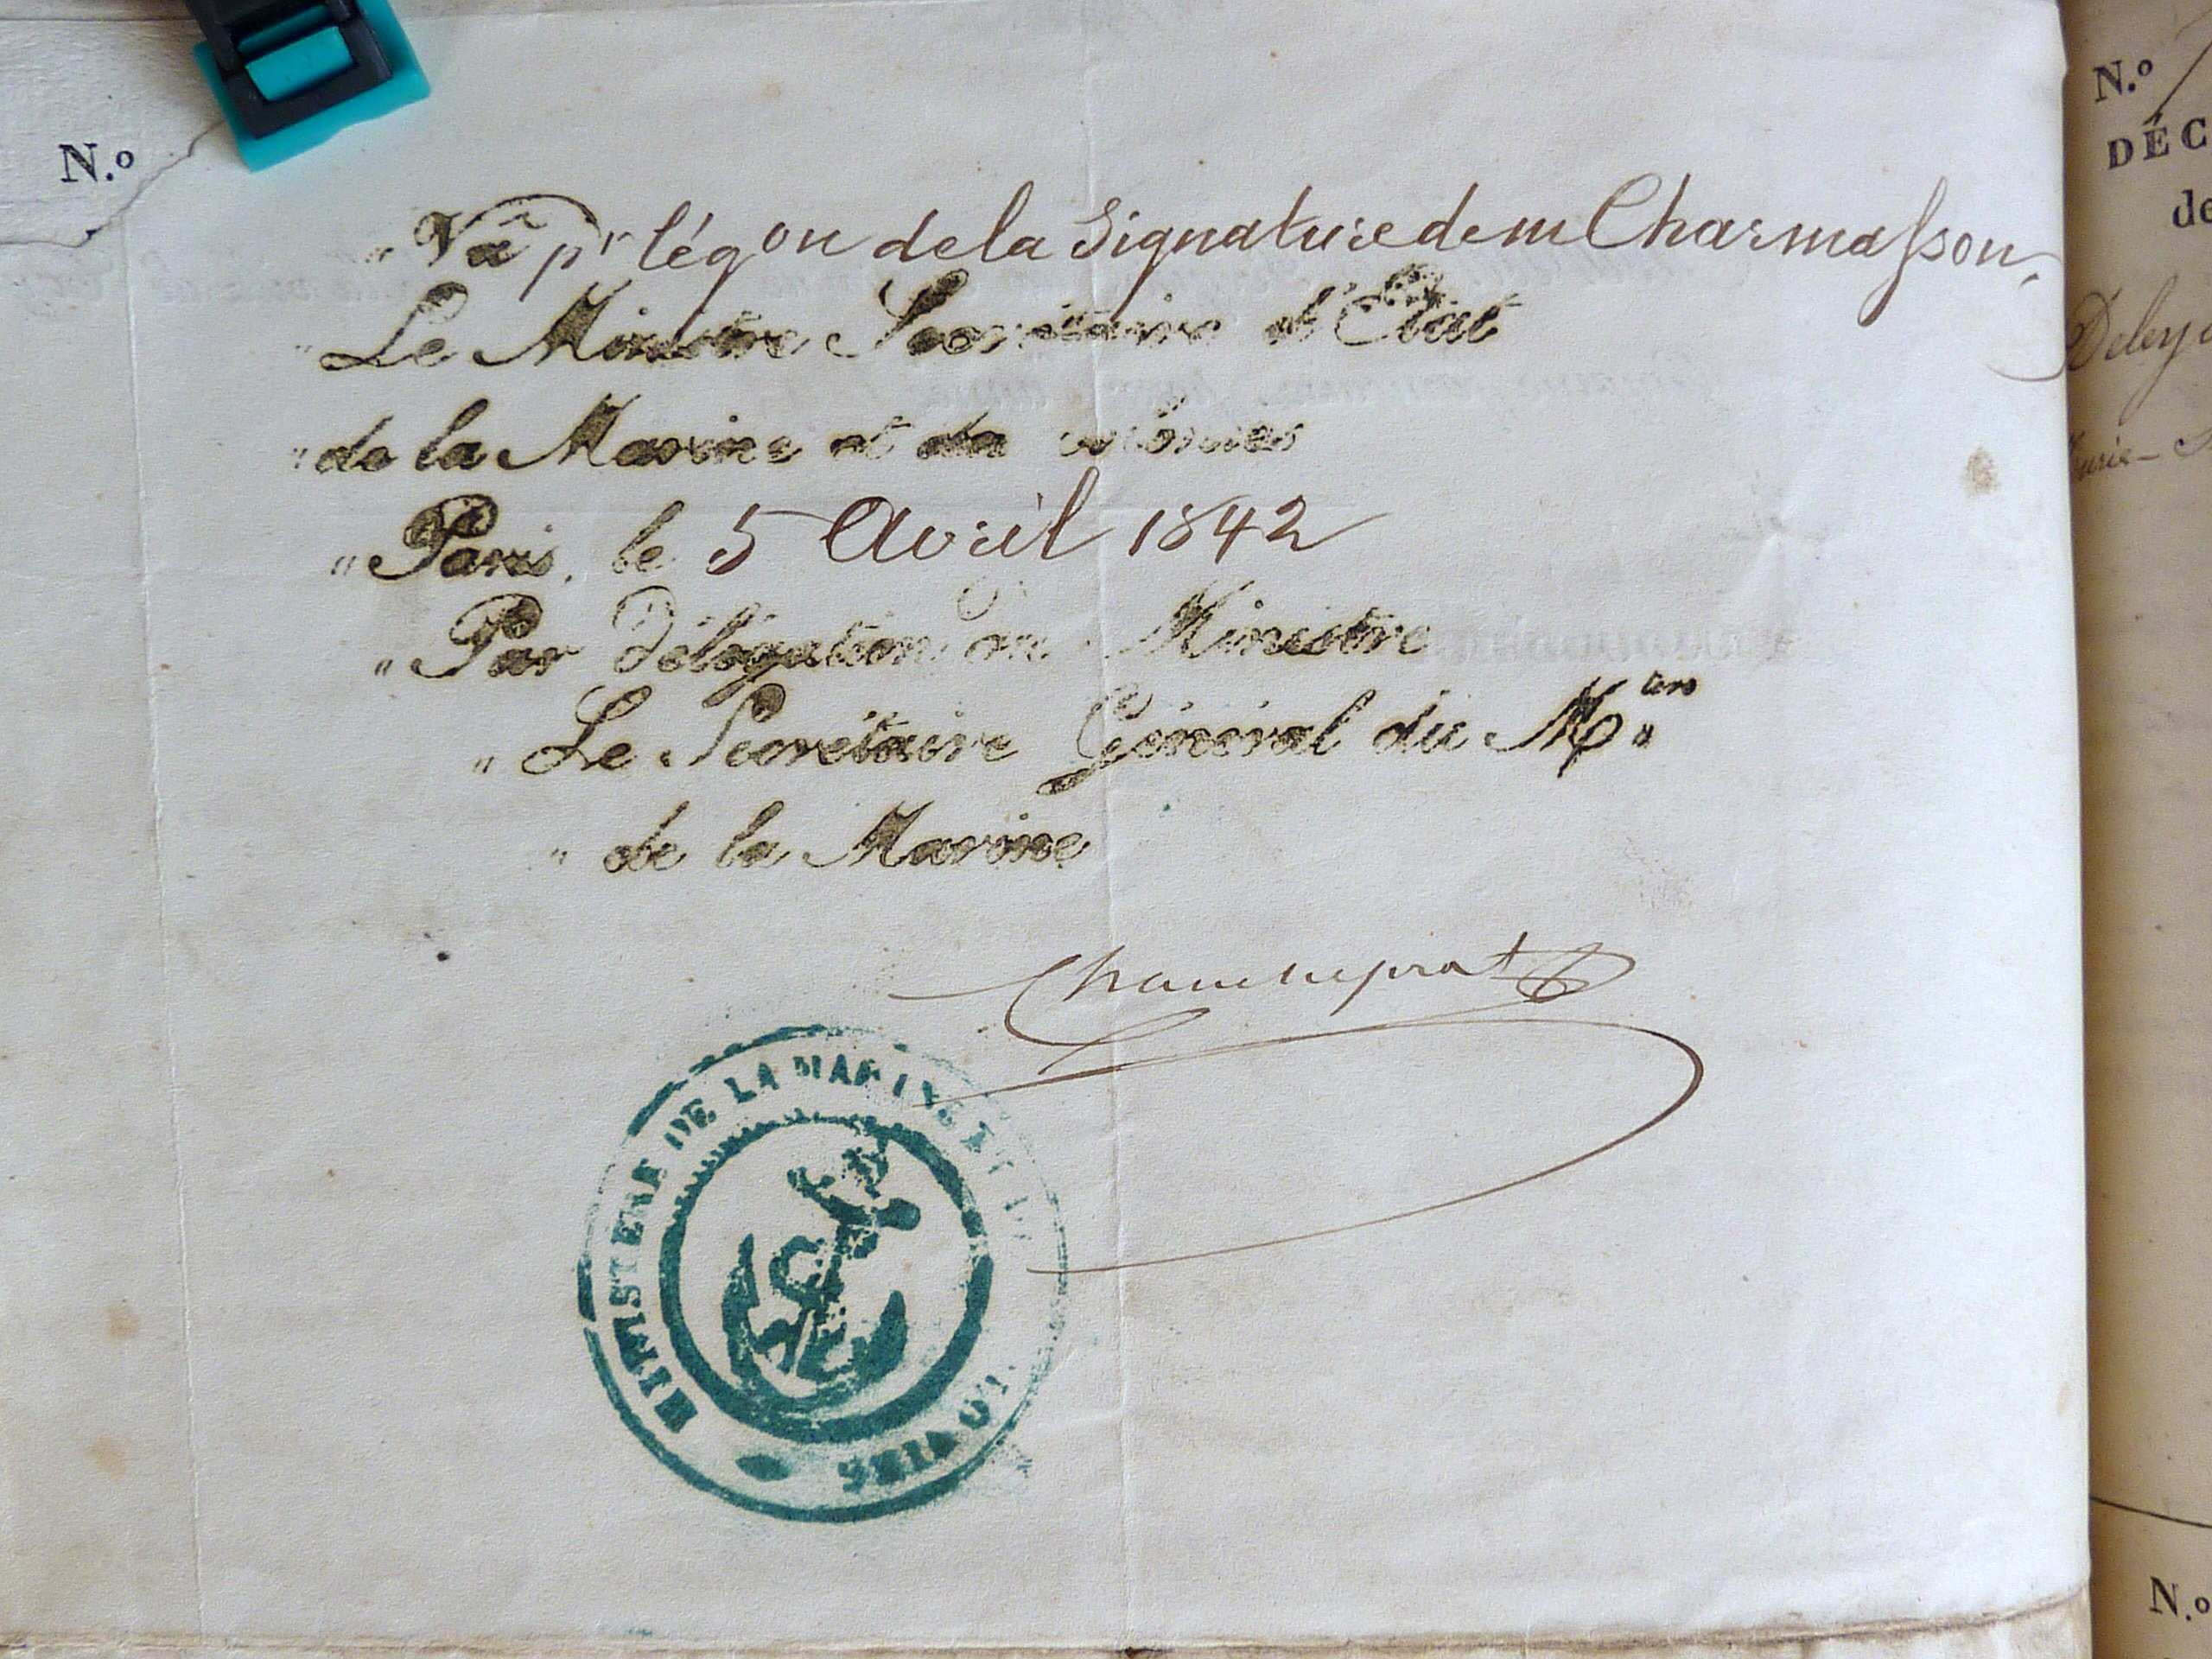 N.º
Vu pr légon de la Signature de m Charmasson.
Le Ministre Secrétaire d'Etat
de la Marine et des colonies
Paris, le 5 Avril 1842
Par Délégation du Ministre
Le Secrétaire Général du Mère
de la Marine
Chaucheprat
MINISTERE DE LA MARINE ET DES COLONIES
N.º
DÉC
de
N.º